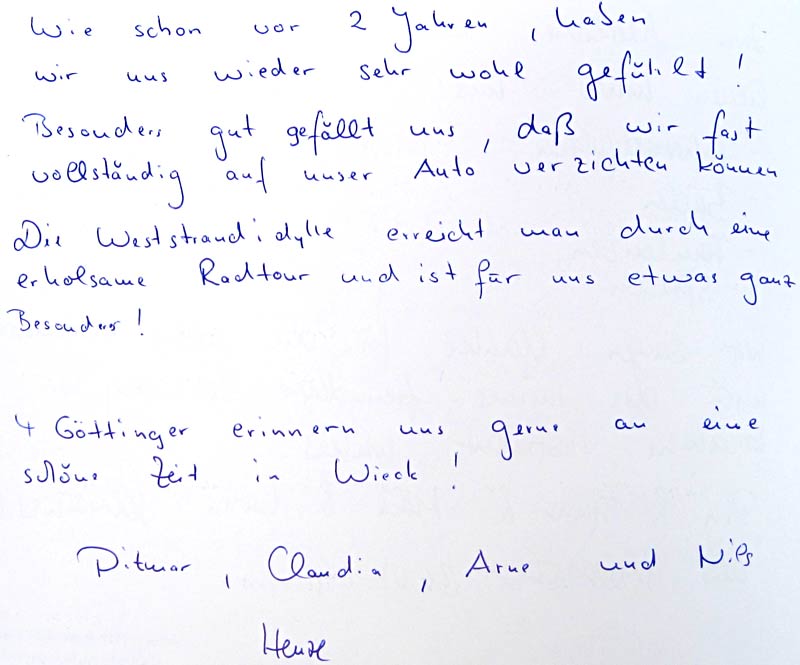 Wie schon vor 2 Jahren, haben
wir uns wieder sehr wohl gefühlt!
Besonders gut gefällt uns, daß wir fast
vollständig auf unser Auto verzichten können
Die Weststrandidylle erreicht man durch eine
erholsame Radtour und ist für uns etwas ganz
Besonders!
4 Göttinger erinnern uns gerne an eine
schöne Zeit in Wieck!
Ditmar, Claudia, Arne und Nils